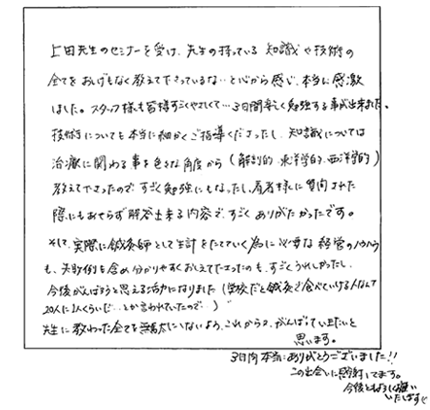 上田先生のセミナーを受け、先生の持っている知識や技術の
全てをおしげもなく教えて下さっているな…と心から感じ、本当に感激
しました。スタッフ様も皆様すごくやさしくて…3日間楽しく勉強する事が出来ました。
技術についても本当に細かくご指導くださったし、知識については
治療に関わる事を色々な角度から(解剖的・東洋学的・西洋学的)
教えて下さったので、すごく勉強にもなったし、患者様に質問された
際にもあせらず解答出来る内容で、すごくありがたかったです。
そして、実際に鍼灸師として生計をたてていく為に必要な経営のノウハウ
も、失敗例も含め分かりやすくおしえて下さったのも、すごくうれしかったし、
今後がんばろうと思える活力になりました(学校だと鍼灸で食べていける人なんて
20人に1人くらいだ…とか言われていたので…)
先生に教わった全てを無駄にしないよう、これからも、がんばっていきたいと
思います。
3日間本当にありがとうございました!!
この出会いに感謝してます。
今後ともよろしくお願い
いたします